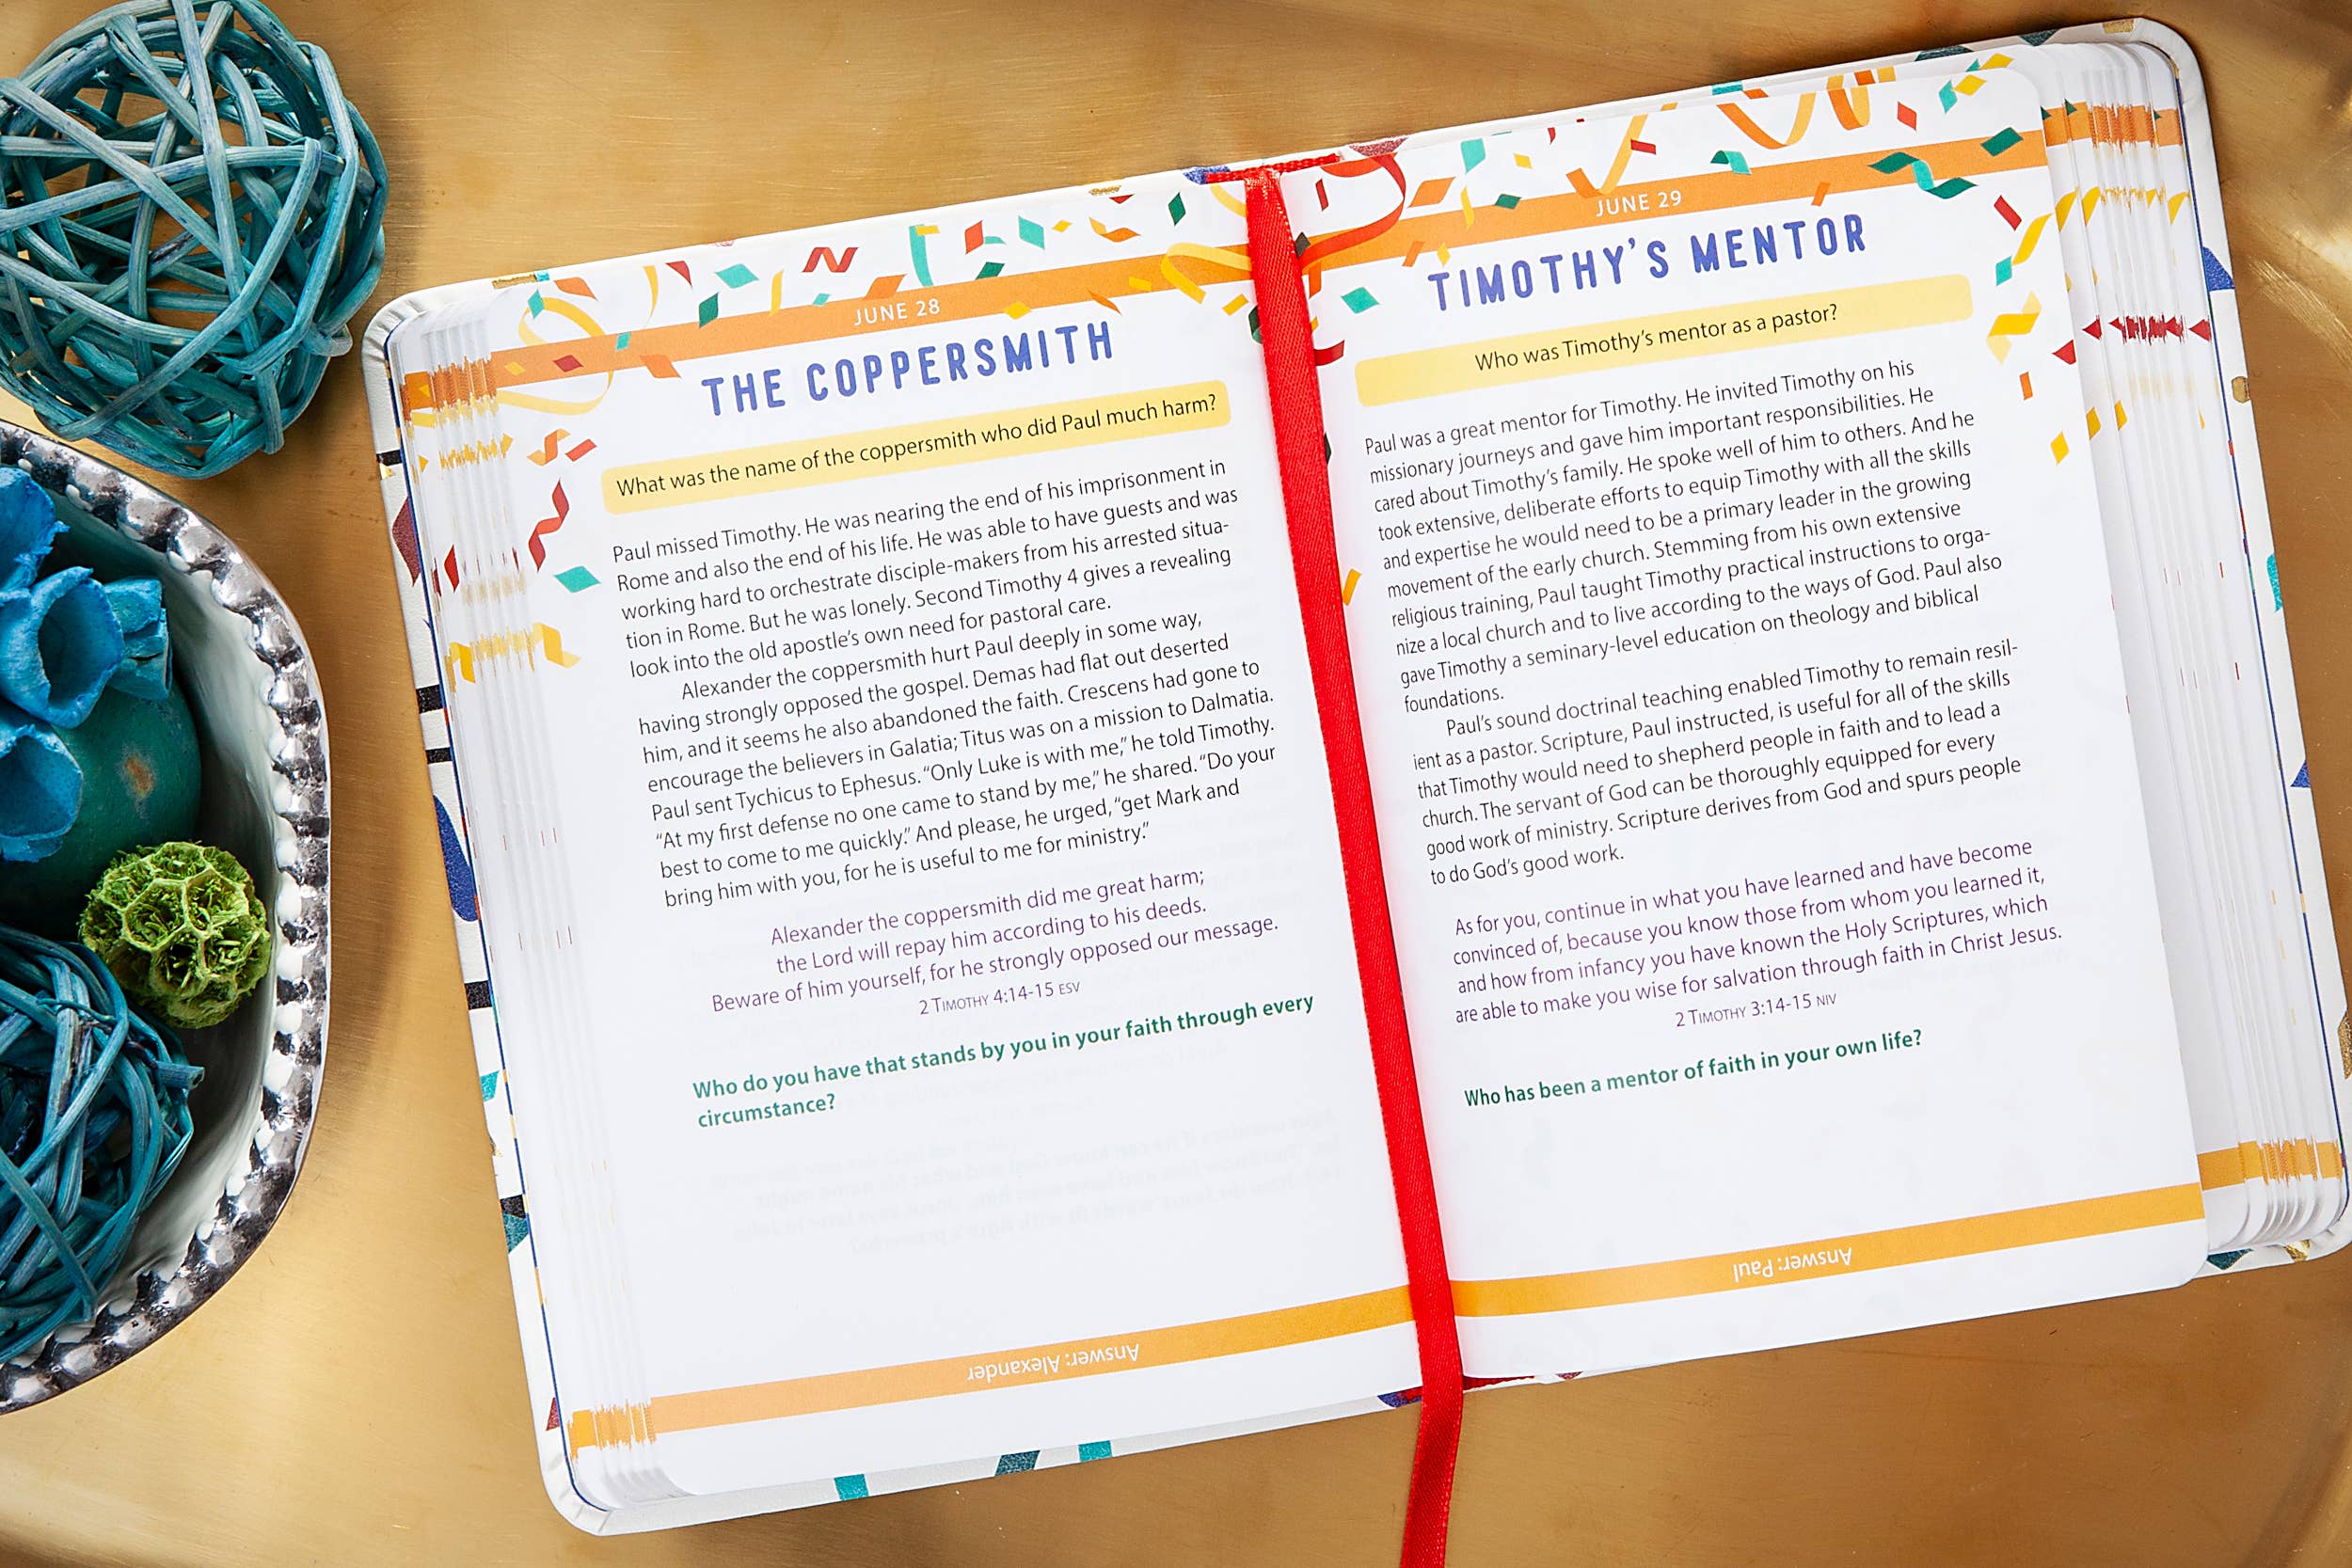 JUNE 28
THE COPPERSMITH
What was the name of the coppersmith who did Paul much harm?
Paul missed Timothy. He was nearing the end of his imprisonment in
Rome and also the end of his life. He was able to have guests and was
working hard to orchestrate disciple-makers from his arrested situa-
tion in Rome. But he was lonely. Second Timothy 4 gives a revealing
look into the old apostle's own need for pastoral care.
Alexander the coppersmith hurt Paul deeply in some way,
having strongly opposed the gospel. Demas had flat out deserted
him, and it seems he also abandoned the faith. Crescens had gone to
encourage the believers in Galatia; Titus was on a mission to Dalmatia.
Paul sent Tychicus to Ephesus. “Only Luke is with me,” he told Timothy.
“At my first defense no one came to stand by me,” he shared. “Do your
best to come to me quickly.” And please, he urged, “get Mark and
bring him with you, for he is useful to me for ministry.”
Alexander the coppersmith did me great harm;
the Lord will repay him according to his deeds.
Beware of him yourself, for he strongly opposed our message.
2 TIMOTHY 4:14-15 ESV
Who do you have that stands by you in your faith through every
circumstance?
Answer: Alexander
JUNE 29
TIMOTHY'S MENTOR
Who was Timothy's mentor as a pastor?
Paul was a great mentor for Timothy. He invited Timothy on his
missionary journeys and gave him important responsibilities. He
cared about Timothy's family. He spoke well of him to others. And he
took extensive, deliberate efforts to equip Timothy with all the skills
and expertise he would need to be a primary leader in the growing
movement of the early church. Stemming from his own extensive
religious training, Paul taught Timothy practical instructions to orga-
nize a local church and to live according to the ways of God. Paul also
gave Timothy a seminary-level education on theology and biblical
foundations.
Paul's sound doctrinal teaching enabled Timothy to remain resil-
ient as a pastor. Scripture, Paul instructed, is useful for all of the skills
that Timothy would need to shepherd people in faith and to lead a
church. The servant of God can be thoroughly equipped for every
good work of ministry. Scripture derives from God and spurs people
to do God's good work.
As for you, continue in what you have learned and have become
convinced of, because you know those from whom you learned it,
and how from infancy you have known the Holy Scriptures, which
are able to make you wise for salvation through faith in Christ Jesus.
2 TIMOTHY 3:14-15 NIV
Who has been a mentor of faith in your own life?
Answer: Paul